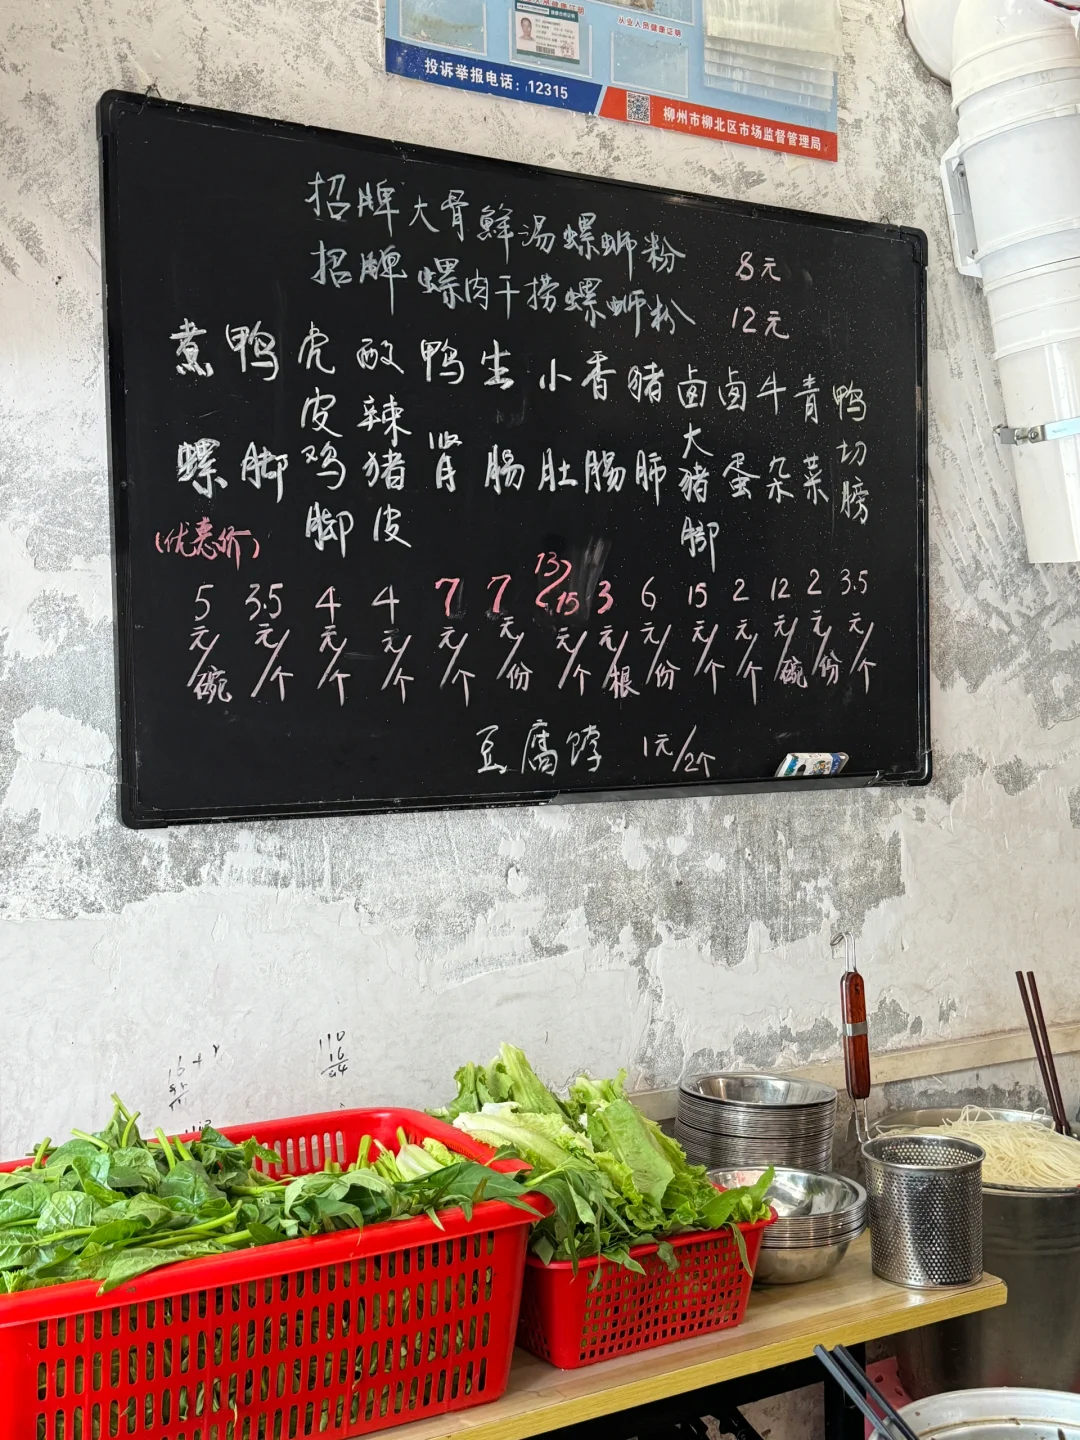 从业人员健康证明
投诉举报电话：12315
柳州市柳北区市场监督管理局
招牌大骨鲜汤螺蛳粉 8元
招牌螺肉干捞螺蛳粉 12元
煮螺 (优惠价) 5元/碗
鸭脚 3.5元/个
虎皮鸡脚 4元/个
酸辣猪皮 4元/个
鸭肾 7元/个
生肠 7元/份
小肚 13/15元/个
香肠 3元/根
猪肺 6元/份
卤大猪脚 15元/个
卤蛋 2元/个
牛杂 12元/碗
青菜 2元/份
鸭切膀 3.5元/个
豆腐饽 1元/2个
110
16